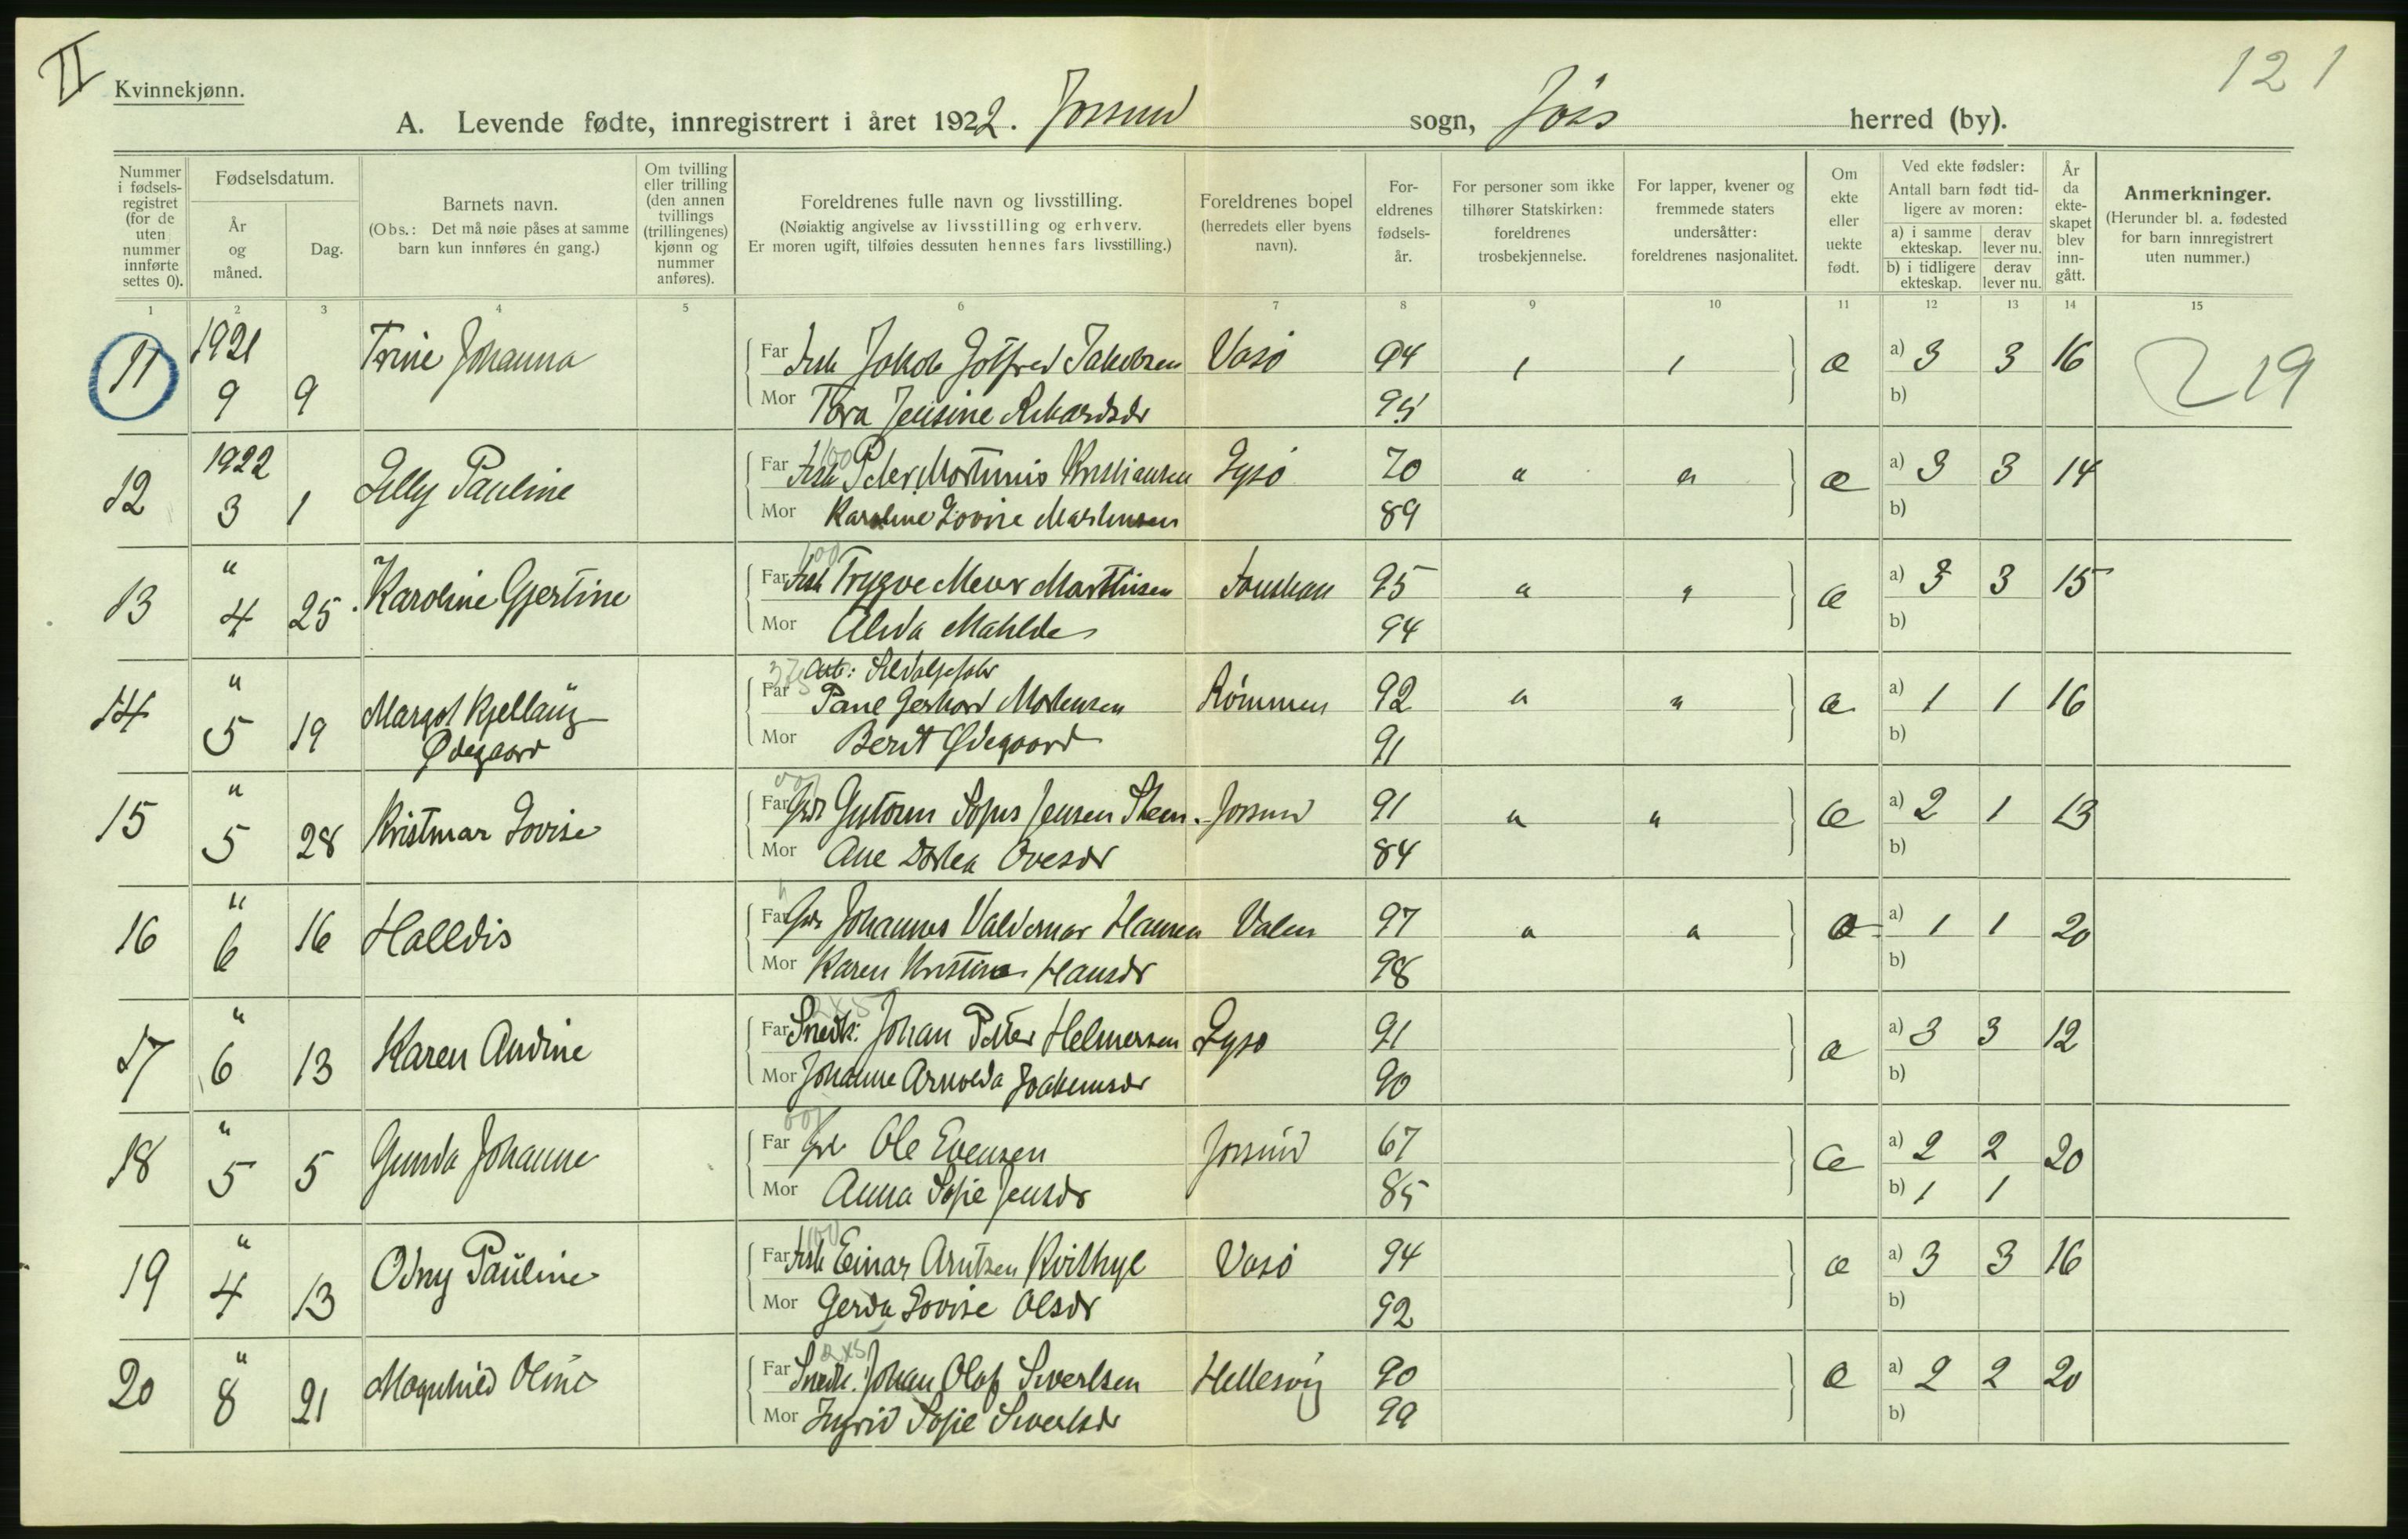 II
12 1
Kvinnekjønn.
A. Levende fødte, innregistrert i året 1922. Jøssund sogn, Jøss herred (by).
Nummer i fødsels-registret (for de uten nummer innførte settes 0).
Fødselsdatum.
År og måned.
Dag.
Barnets navn.
(Obs.: Det må nøie påses at samme barn kun innføres én gang.)
Om tvilling eller trilling (den annen tvillings (trillingenes) kjønn og nummer anføres).
Foreldrenes fulle navn og livsstilling.
(Nøiaktig angivelse av livsstilling og erhverv.
Er moren ugift, tilføies dessuten hennes fars livsstilling.)
Foreldrenes bopel (herredets eller byens navn).
For-eldrenes fødsels-år.
For personer som ikke tilhører Statskirken: foreldrenes trosbekjennelse.
For lapper, kvener og fremmede staters undersåtter: foreldrenes nasjonalitet.
Om ekte eller uekte født.
Ved ekte fødsler:
Antall barn født tid-ligere av moren:
a) i samme ekteskap.
derav lever nu.
b) i tidligere ekteskap.
derav lever nu.
År da ekte-skapet blev inn-gått.
Anmerkninger.
(Herunder bl. a. fødested for barn innregistrert uten nummer.)
1 2 3 4 5 6 7 8 9 10 11 12 13 14 15
11 1921 9 9 Trine Johanna Far Fisk Jakob Gotfred Jakobsen Vasø 94 a) 3 3 16 219
Mor Tora Jensine Rikardsdr 95 b)
12 1922 3 1 Lilly Pauline Far Fisk Peder Mortinius Kristiansen Lysø 70 " " æ a) 3 3 14
Mor Karoline Lovise Martensen 89 b)
13 " 4 25 Karoline Gjertine Far Fisk Trygve Meier Martinsen 95 " " æ a) 3 3 15
Mor Alida Matilde 94 b)
14 " 5 19 Margot Kjellaug Ødegaard Far Paul Gerhard Mortensen Rømmen 92 " " æ a) 1 1 16
Mor Berit Ødegaard 91 b)
15 " 5 28 Kristmar Lovise Far Gbr Gutorm Sofus Jensen Steen Jøssund 91 " " æ a) 2 1 13
Mor Ane Dortea Ovesdr 84 b)
16 " 6 16 Halldis Far Gbr Johannes Valdemar Hansen Valen 97 " " æ a) 1 1 20
Mor Karen Kristine Hansdr 98 b)
17 " 6 13 Karen Andine Far Snedk: Johan Peter Helmersen Lysø 91 æ a) 3 3 12
Mor Johanne Arnolda Joakimsdr 90 b)
18 " 5 5 Gunda Johanne Far Gbr Ole Evensen Jøssund 67 æ a) 2 2 20
Mor Anna Sofie Jensdr 85 b) 1 1
19 " 4 13 Odny Pauline Far Fisk Einar Arntzen Kvithyl Vasø 94 æ a) 3 3 16
Mor Gerda Lovise Olsdr 92 b)
20 " 8 21 Magnhild Oline Far Snedk. Johan Olaf Sivertsen Hellesvig 90 æ a) 2 2 20
Mor Ingrid Sofie Sivertsdr 99 b)